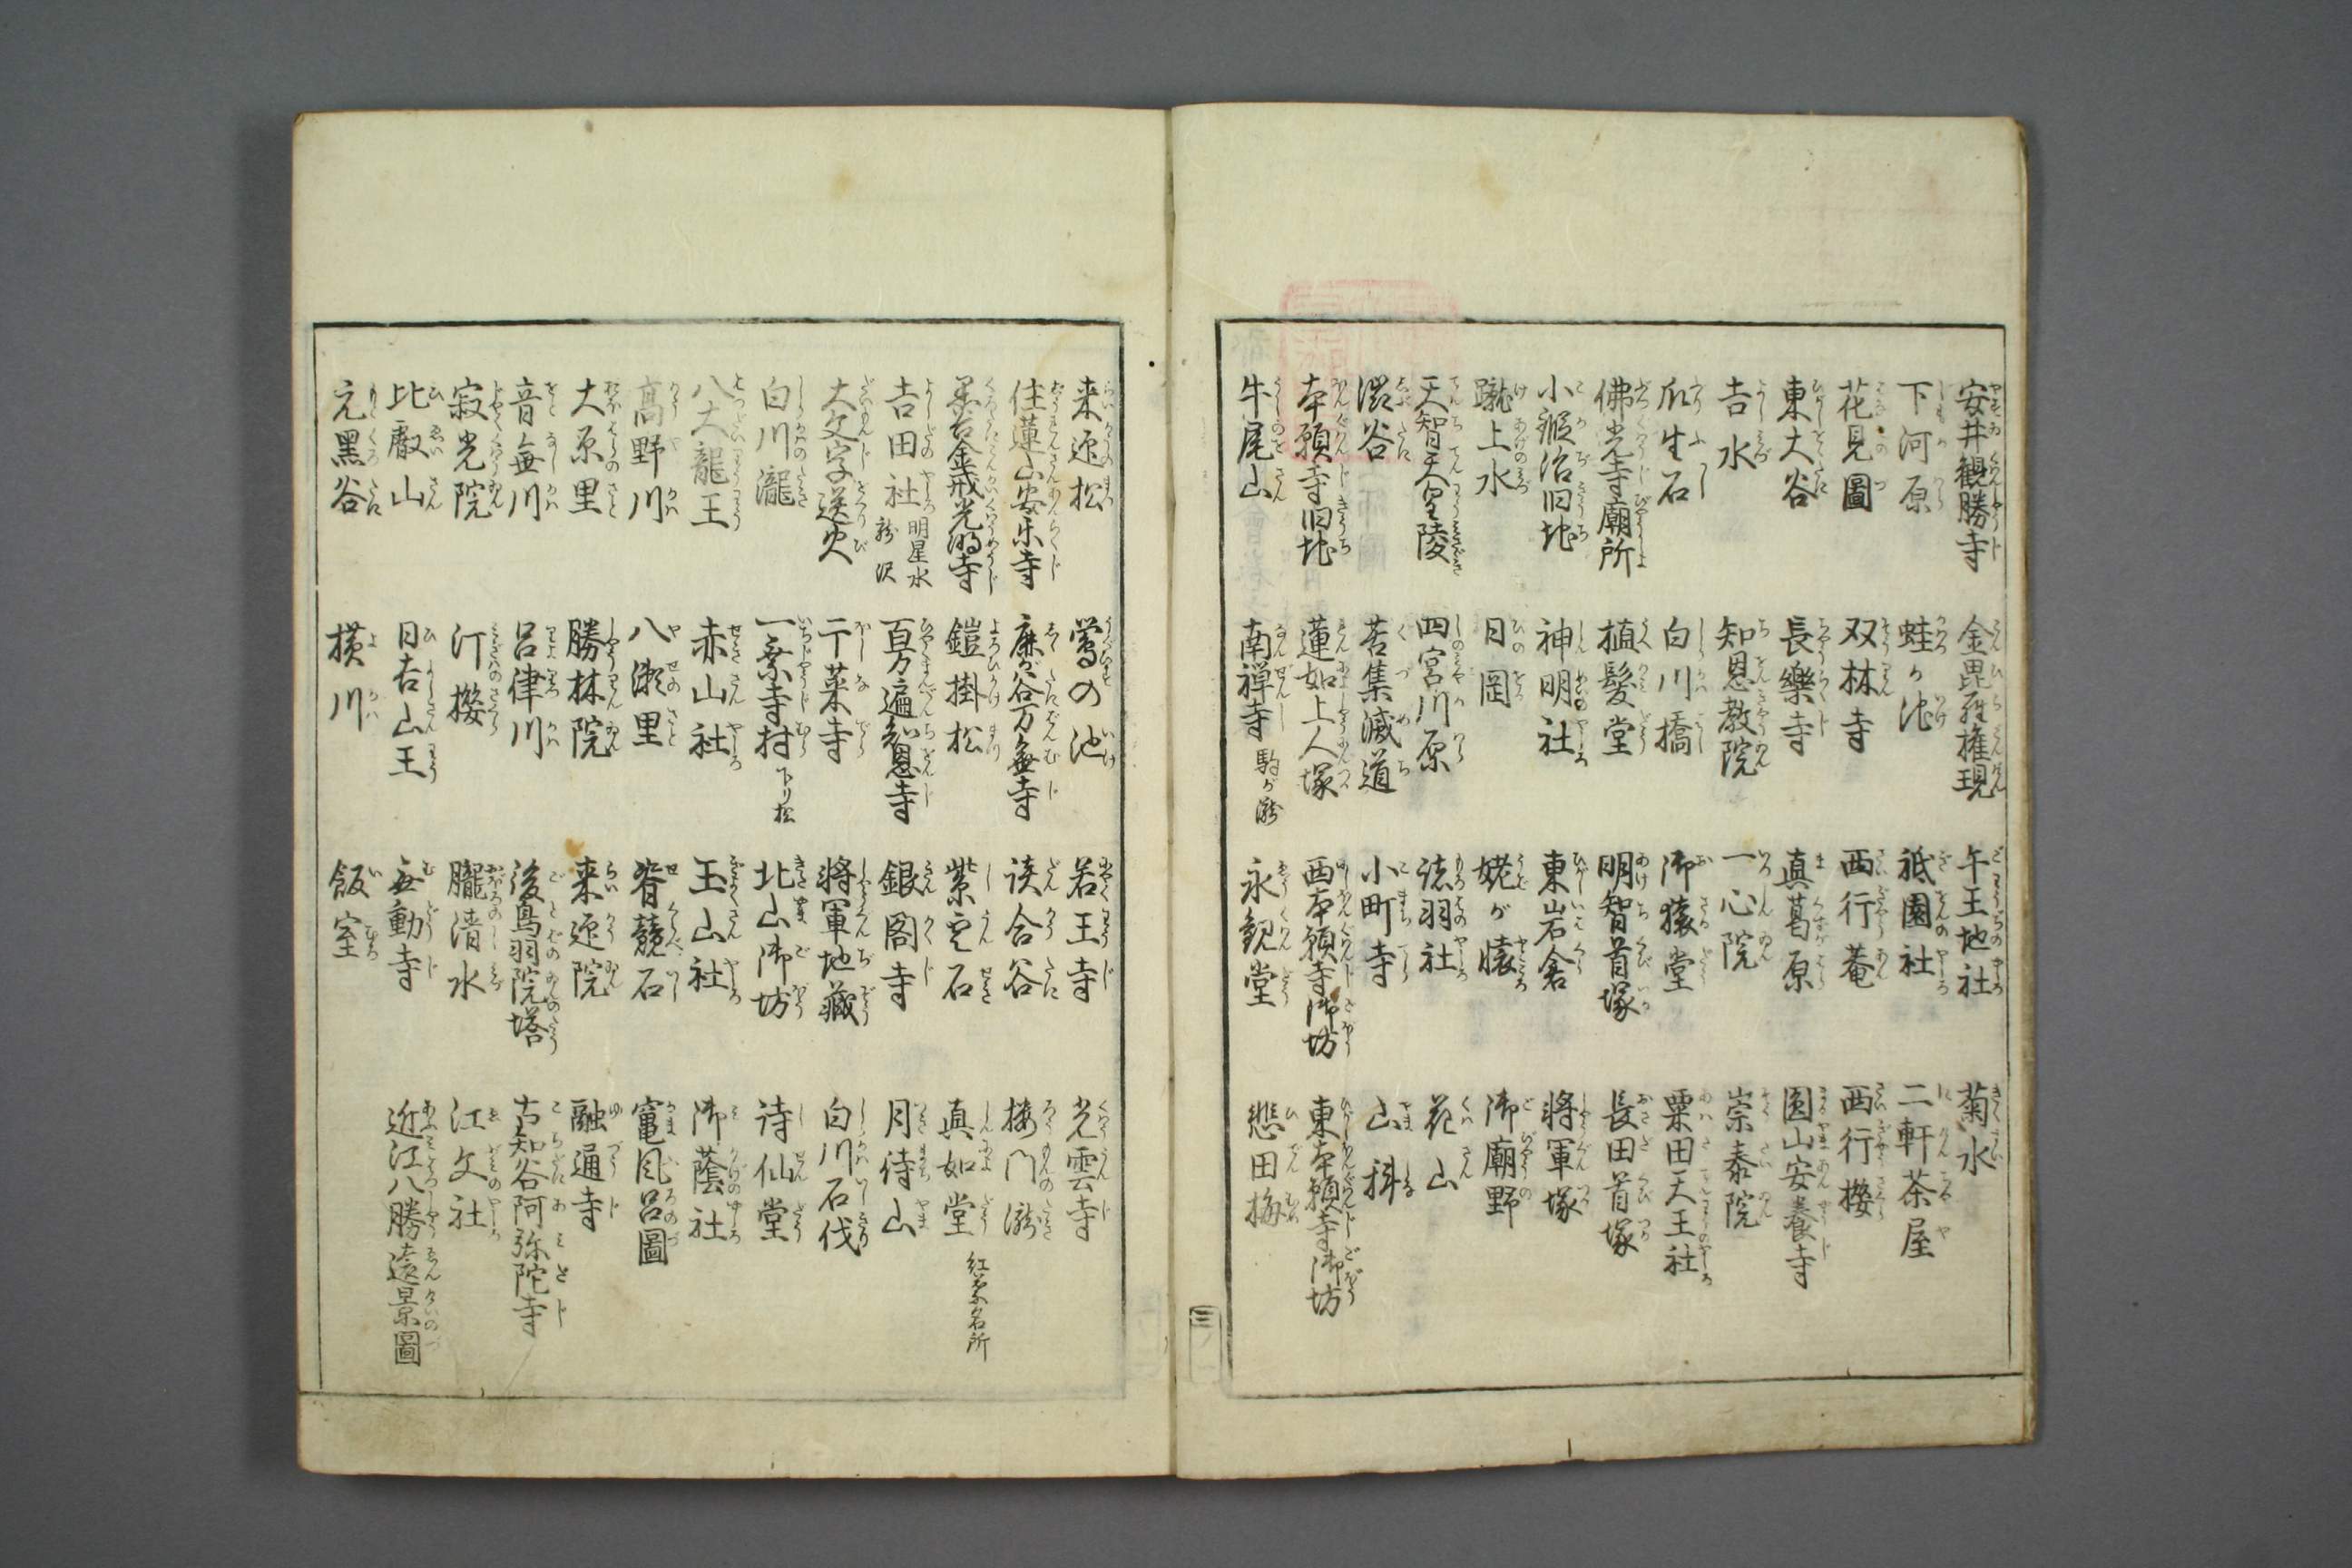 安井観勝寺 金毘羅権現 午王地社 菊水
下河原 蛙が池 祇園社 二軒茶屋
花見圖 双林寺 西行菴 西行櫻
東大谷 長樂寺 真葛原 圓山安養寺
吉水 知恩教院 一心院 崇泰院
瓜生石 白川橋 御猿堂 粟田天王社
佛光寺廟所 植髪堂 明智首塚 長田首塚
小鍛冶旧地 神明社 東岩倉 将軍塚
蹴上水 日岡 姥が懐 御廟野
天智天皇陵 四宮川原 諸羽社 花山
澁谷 苦集滅道 小町寺 山科
本願寺旧地 蓮如上人塚 西本願寺御坊 東本願寺御坊
牛尾山 南禅寺 駒が瀧 永観堂 悲田梅
三
来迎松 鶯の池 若王寺 光雲寺
住蓮山安楽寺 鹿が谷万無寺 談合谷 楼門瀧
黒谷金戒光明寺 鎧掛松 紫雲石 真如堂 紅葉名所
吉田社 明星水 龍沢 百万遍知恩寺 銀閣寺 月待山
大文字送火 干菜寺 将軍地蔵 白川石伐
白川瀧 一乗寺村 下り松 北山御坊 詩仙堂
八大龍王 赤山社 玉山社 御蔭社
高野川 八瀬里 脊競石 竃風呂圖
大原里 勝林院 来迎院 融通寺
音無川 呂律川 後鳥羽院塔 古知谷阿弥陀寺
寂光院 汀櫻 朧清水 江文社
比叡山 日吉山王 無動寺 近江八勝遠景圖
元黒谷 横川 飯室